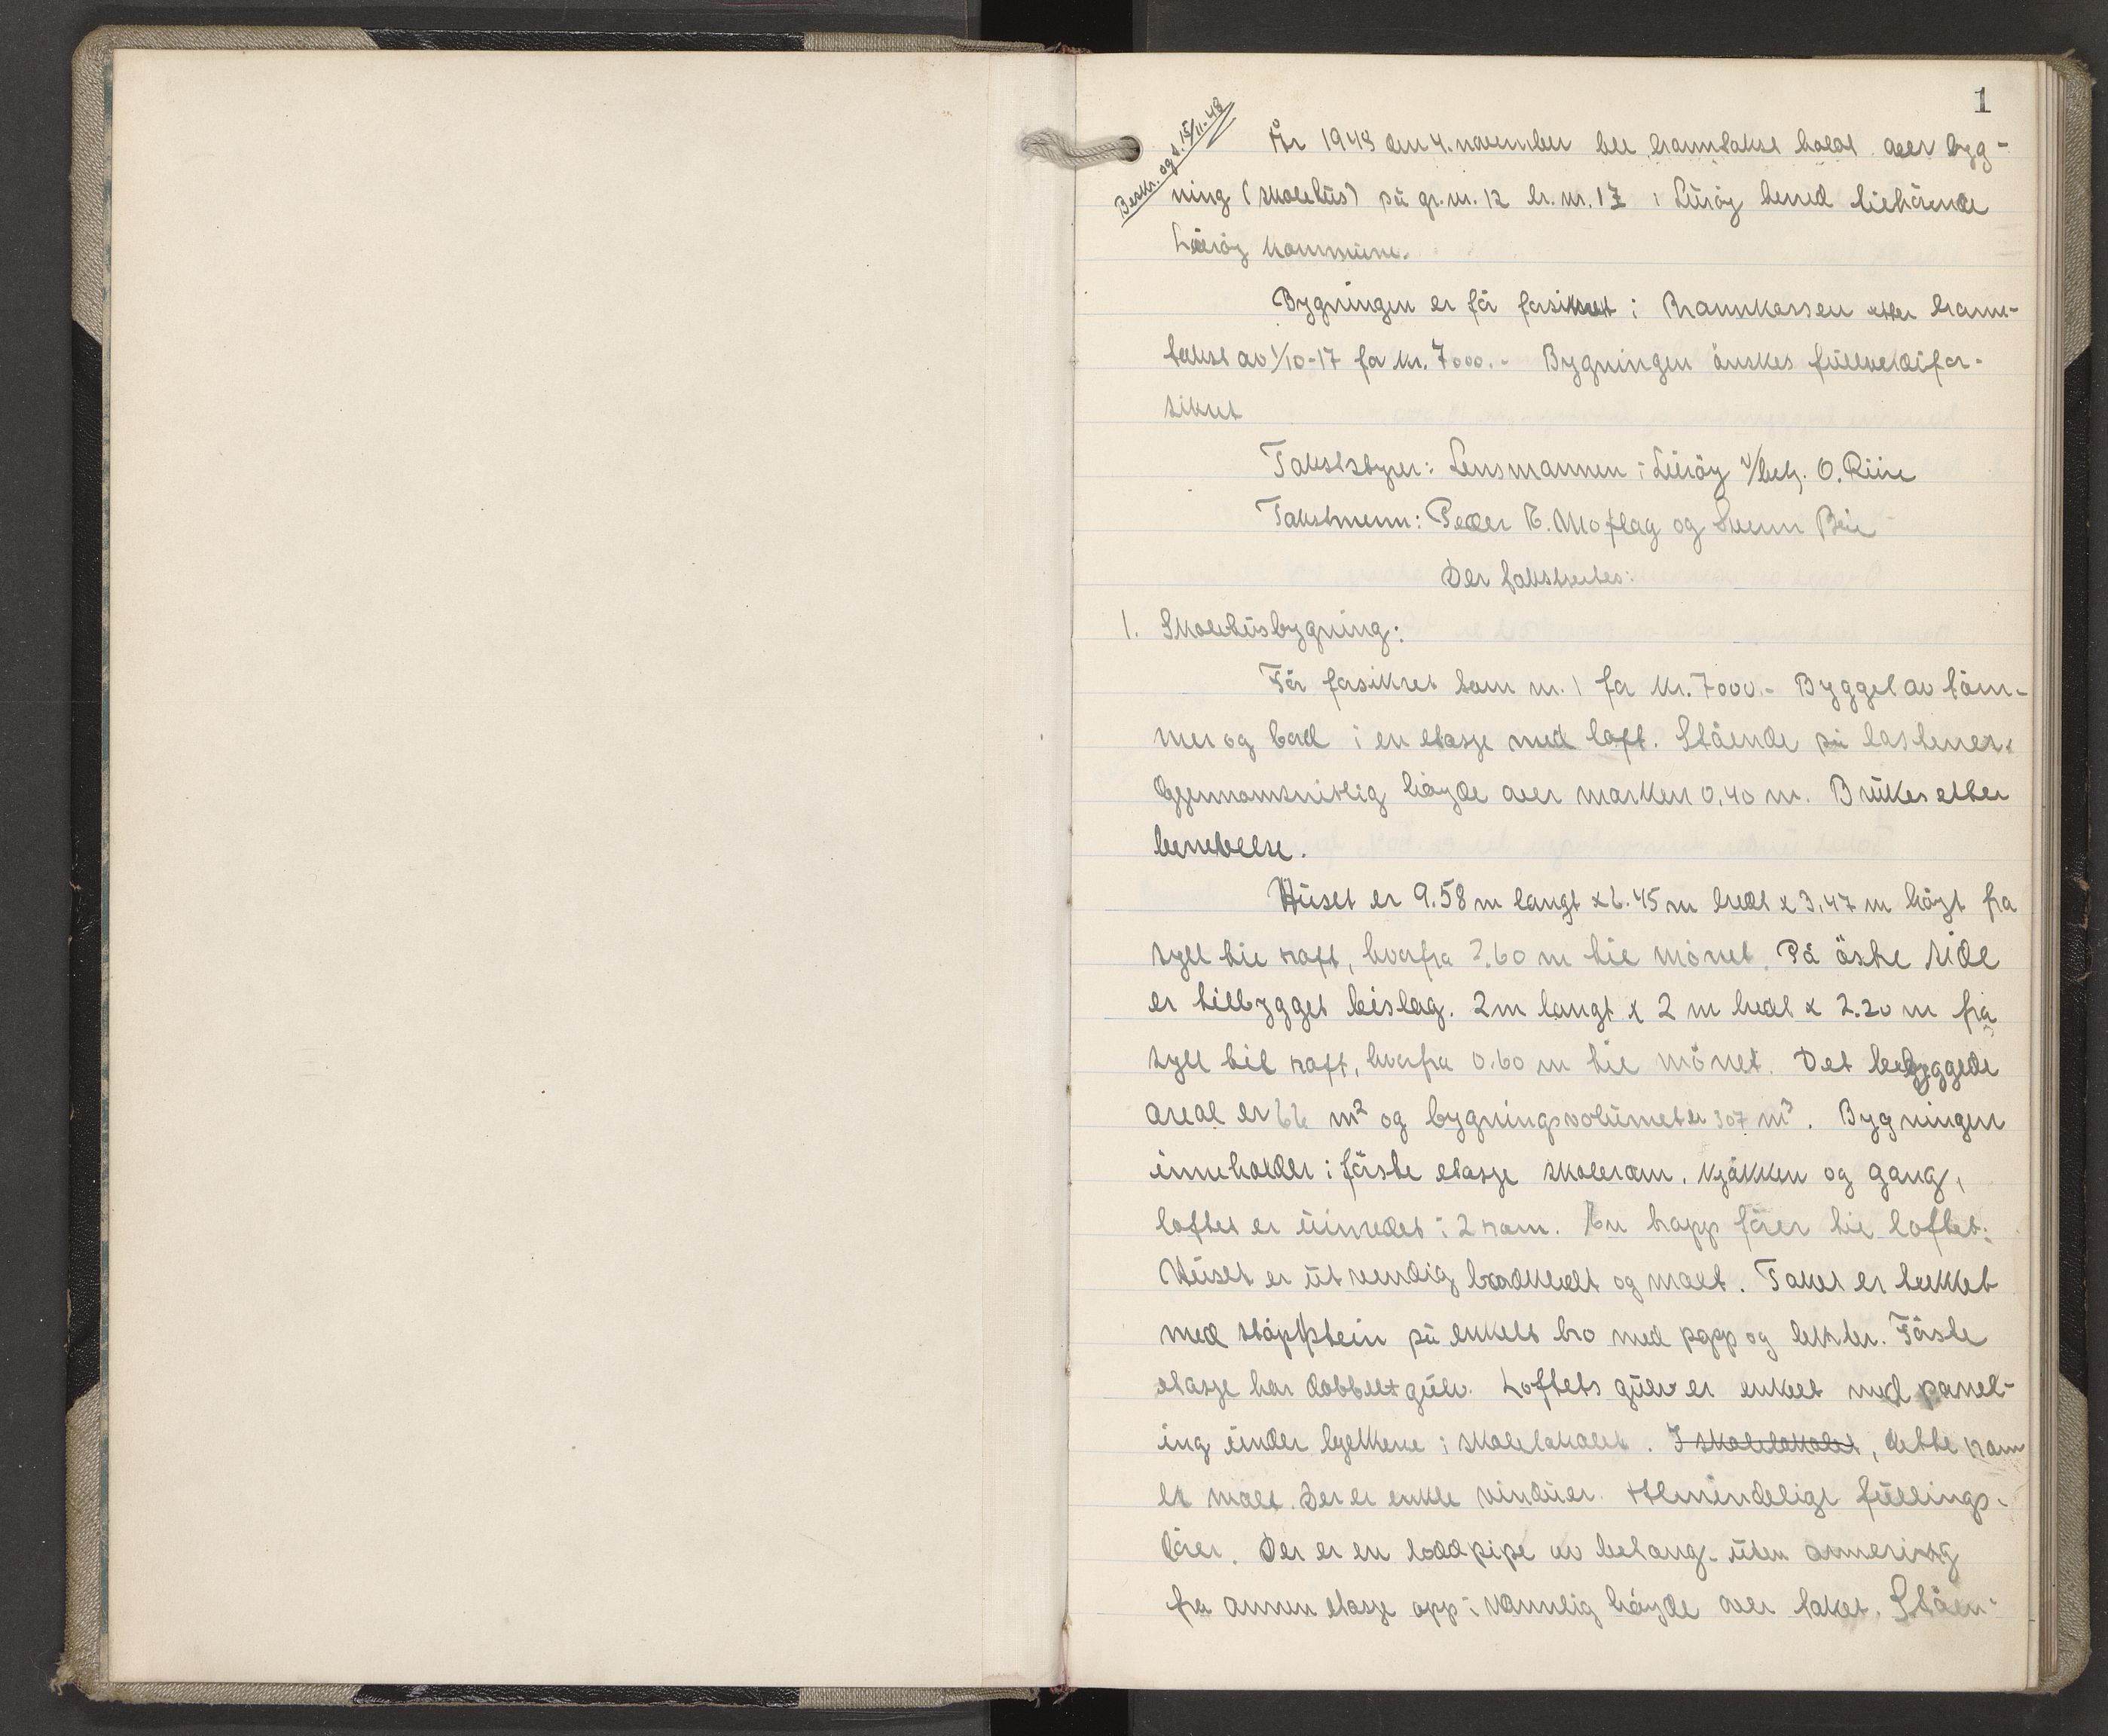 1
Beskr. og s. 15/11-48
År 1948 den 4. november ble branntakst holdt over byg-
ning (skolehus) på gr. nr. 12 br. nr. 17 i Lurøy herred tilhørende
Lurøy kommune.
Bygningen er før forsikret i Brannkassen etter brann-
takst av 1/10-17 for kr. 7000.- Bygningen ønskes fullverdifor-
sikret
Takststyrer: Lensmannen i Lurøy v/betj. O. Riise
Takstmenn: Peder E. Moflag og Svenn
Der takstertes:
1. Skolehusbygning:
Før forsikret som nr. 1 for kr. 7000.- Bygget av tøm-
mer og bord i en etasje med loft. Stående på
Gjennomsnitlig høyde over marken 0,40 m. Brukes etter
benevnelse.
Huset er 9.58 m langt x 6.45 m bredt x 3,47 m høgt fra
syll til raft, hvorfra 2.60 m til mønet. På østre side
er tilbygget bislag. 2 m langt x 2 m bredt x 2.20 m fra
syll til raft, hvorfra 0.60 m til mønet. Det bebyggede
areal er 66 m² og bygningsvolumet er 307 m³. Bygningen
inneholder i første etasje skolerom, kjøkken og gang,
loftet er innredet i 2 rom. En trapp fører til loftet.
Huset er utvendig bordkledt og malt. Taket er tekket
med støpstein på enkelt bro med papp og lekter. Første
etasje har dobbelt gulv. Loftets gulv er enkelt med panel-
ing under bjelkene i skolelokalet. I skolelokalet, dette rom
er malt. Der er enkle vinduer. Almindelige fyllings-
dører. Der er en loddpipe av betong uten armering
fra annen etasje opp i vannlig høyde over taket. Ståen-